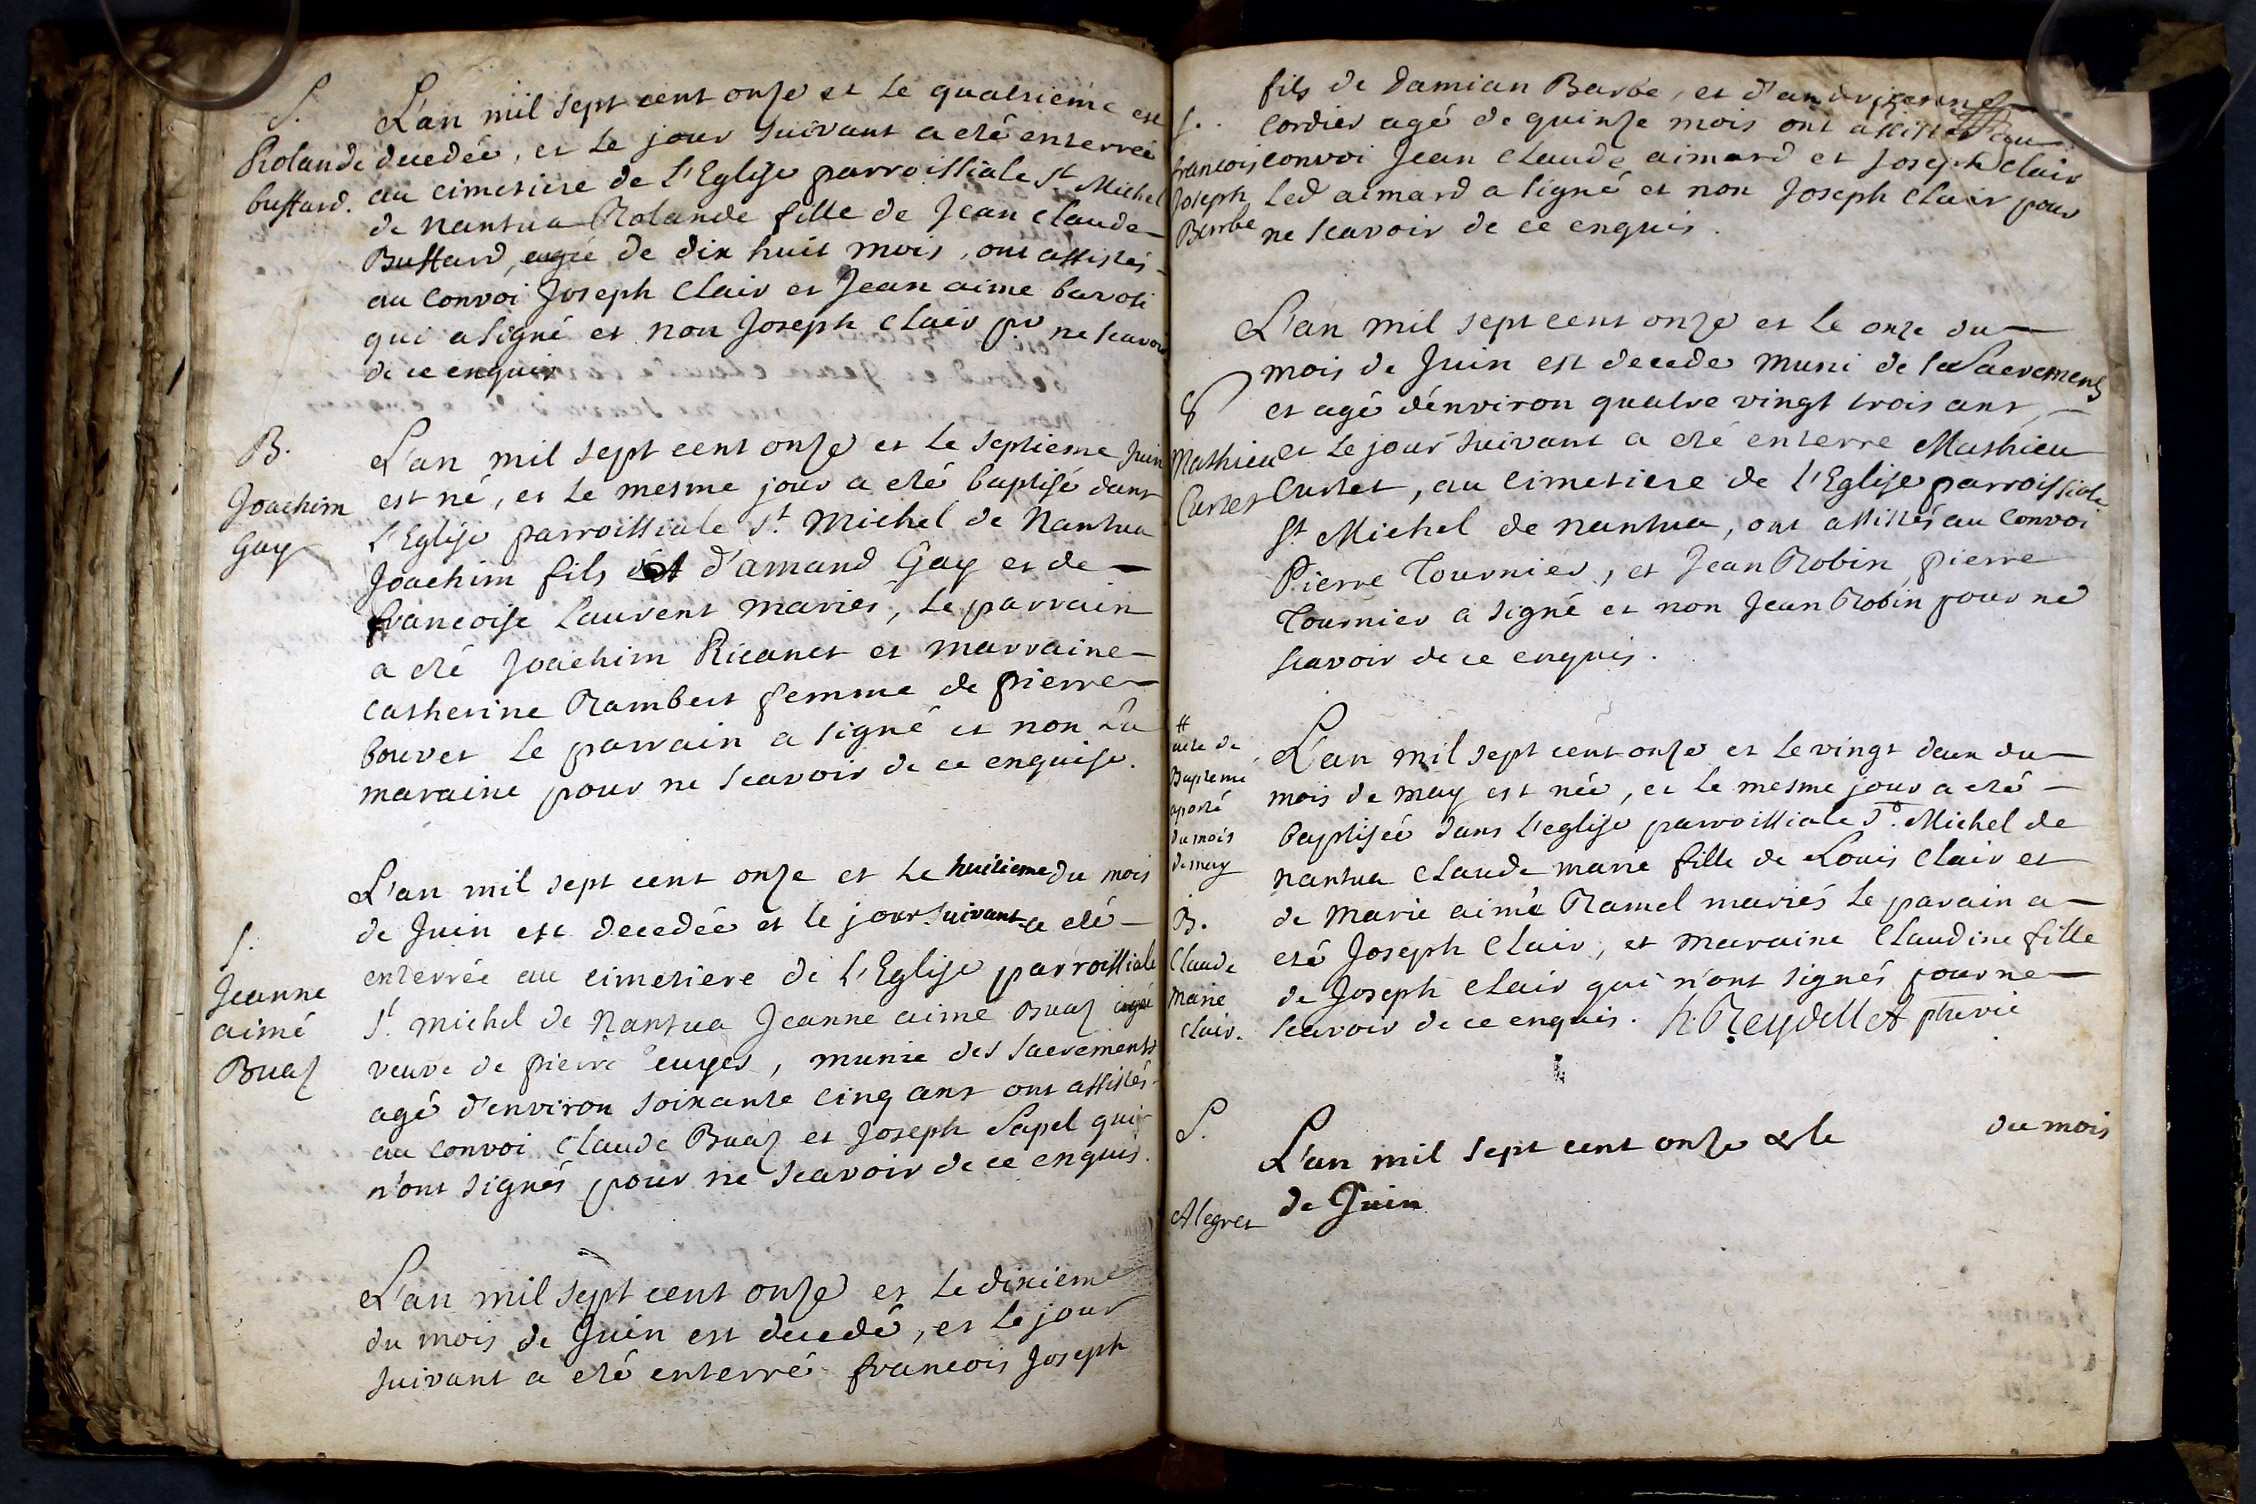 S.
Rolande
buffard.
L'an mil sept cent onze et le quatrieme est
decedée, et le jour suivant a eté enterreé
au cimetiere de l'Eglise parroissiale St Michel
de nantua Rolande fille de Jean claude
Buffard, agée de dix huit mois, ont assistés
au convoi Joseph Clair et Jean aime
qui a signé et non Joseph clair pr ne scavoir
de ce enquis
B.
Joachim
Gay
L'an mil sept cent onze et le septieme Juin
est né, et le mesme jour a eté baptisé dans
l'Eglise parroissiale St. Michel de Nantua
Joachim fils d'amand Gay et de
francoise Laurent mariés, le parrain
a eté Joachim Ricanet et marraine
catherine Rambert femme de pierre
bouvet le parrain a signé et non la
maraine pour ne scavoir de ce enquise.
S.
Jeanne
aimé
Buaz
L'an mil sept cent onze et le huitieme du mois
de Juin est decedée et le jour suivant a eté
enterrée au cimetiere de l'Eglise parroissiale
St. michel de Nantua Jeanne aime Buaz agée
veuve de pierre euyer, munie des sacrements
agé d'environ soixante cinq ans ont assistés
au convoi claude Buaz et Joseph Sapel qui
n'ont signés pour ne scavoir de ce enquis.
L'an mil sept cent onze et le dixieme
du mois de Juin est decedé, et le jour
suivant a eté enterré francois Joseph
S.
francois
Joseph
Barbe
fils de damian Barbe, et d'
cordier agé de quinze mois ont assistés au
convoi Jean claude aimard et Joseph clair
Led aimard a signé et non Joseph clair pour
ne scavoir de ce enquis.
S
Mathieu
Curtet
L'an mil sept cent onze et le onze du
mois de Juin est decede muni de ses Sacrements
et agé d'environ quatre vingt trois ans,
et le jour suivant a eté enterre Mathieu
Curtet, au cimetiere de l'Eglise parroissiale
St Michel de nantua, ont assistés au convoi
Pierre Tournier, et Jean Robin, pierre
Tournier a signé et non Jean Robin pour ne
scavoir de ce enquis.
#
acte de
Bapteme
aporté
du mois
de may
B.
Claude
marie
clair.
L'an mil sept cent onze et le vingt deux du
mois de may est née, et le mesme jour a eté
baptisée dans l'eglise parroissiale St. Michel de
nantua claude marie fille de Louis clair et
de marie aimé Ramel mariés le parain a
eté Joseph clair, et maraine claudine fille
de Joseph clair qui n'ont signés pour ne
scavoir de ce enquis. h. Reydellet ptre vic
S.
Alegret
L'an mil sept cent onze & le du mois
de Juin